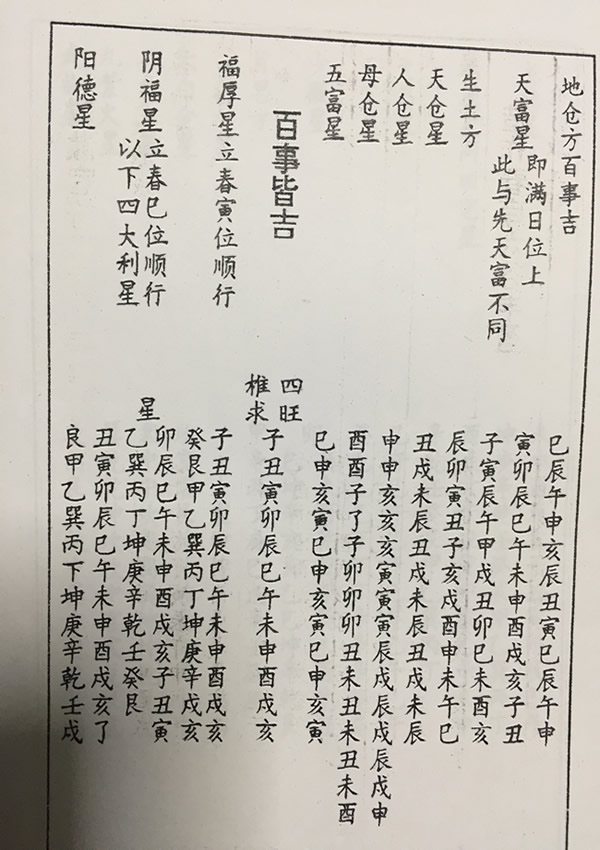 地仓方百事吉
巳辰午申亥辰丑寅巳辰午申
天富星
即满日位上
此与先天富不同
寅卯辰巳午未申酉戌亥子丑
生土方
子寅辰午甲戌丑卯巳未酉亥
天仓星
辰卯寅丑子亥戌酉申未午巳
人仓星
丑戌未辰丑戌未辰丑戌未辰
母仓星
申申亥亥亥寅寅寅辰戌辰戌辰戌申
五富星
酉酉子了子卯卯卯丑未丑未丑未酉
巳申亥寅巳申亥寅巳申亥寅
百事皆吉
四旺
椎求
子丑寅卯辰巳午未申酉戌亥
福厚星立春寅位顺行
子丑寅卯辰巳午未申酉戌亥
癸艮甲乙巽丙丁坤庚辛戌亥
阴福星立春巳位顺行
以下四大利星
星
卯辰巳午未申酉戌亥子丑寅
乙巽丙丁坤庚辛乾壬癸艮
阳德星
丑寅卯辰巳午未申酉戌亥了
良甲乙巽丙下坤庚辛乾壬戌